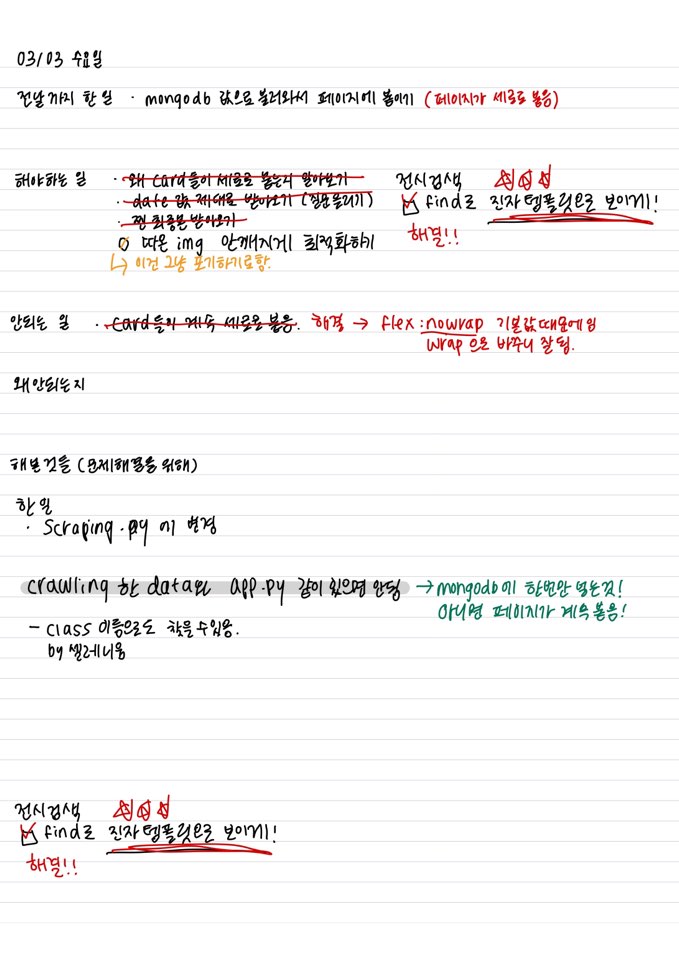 03/03 수요일
전날까지 한 일 · mongodb 값으로 불러와서 페이지에 붙이기 (페이지가 세로로 붙음)
해야하는 일 · 왜 card들이 세로로 붙는지 알아보기
· date 값 제대로 받아오기 (질문올리기)
· 찐 최종본 받아오기
○ 따온 img 안깨지게 최적화하기
↳ 이건 그냥 포기하기로함.
전시검색 ☆☆☆
☑ find로 진자템플릿으로 보이게!
해결!!
안되는 일 · card들이 계속 세로로 붙음. 해결 → flex : nowrap 기본값 때문에임
wrap 으로 바꾸니 잘 됨.
왜 안되는지
해본것들 (문제해결을 위해)
한 일
· Scraping.py 에 변경
crawling 한 data와 app.py 같이 있으면 안됨 → mongodb에 한번만 넣는것!
아니면 페이지가 계속 붙음!
- class 이름으로도 찾을 수 있음.
by 셀레니움
전시검색 ☆☆☆
☑ find로 진자템플릿으로 보이게!
해결!!